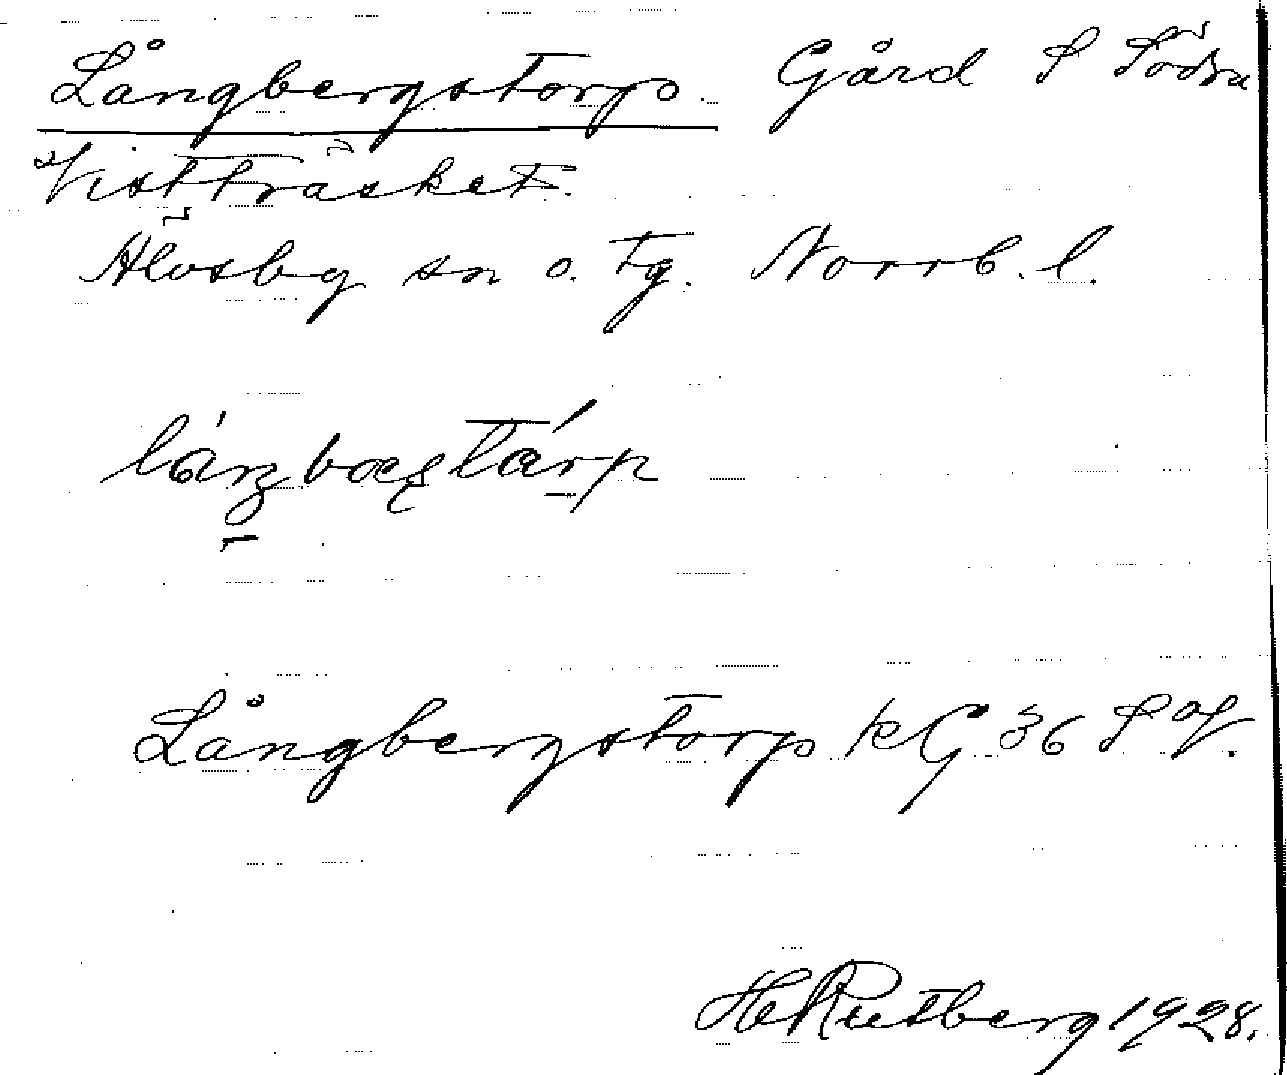 Långbergstorp. Gård S Södra
Vistträsket.
Älvsby sn o. tg. Norrb. l.
Långbergstorp kG 36 S V.
H Rutberg 1928.